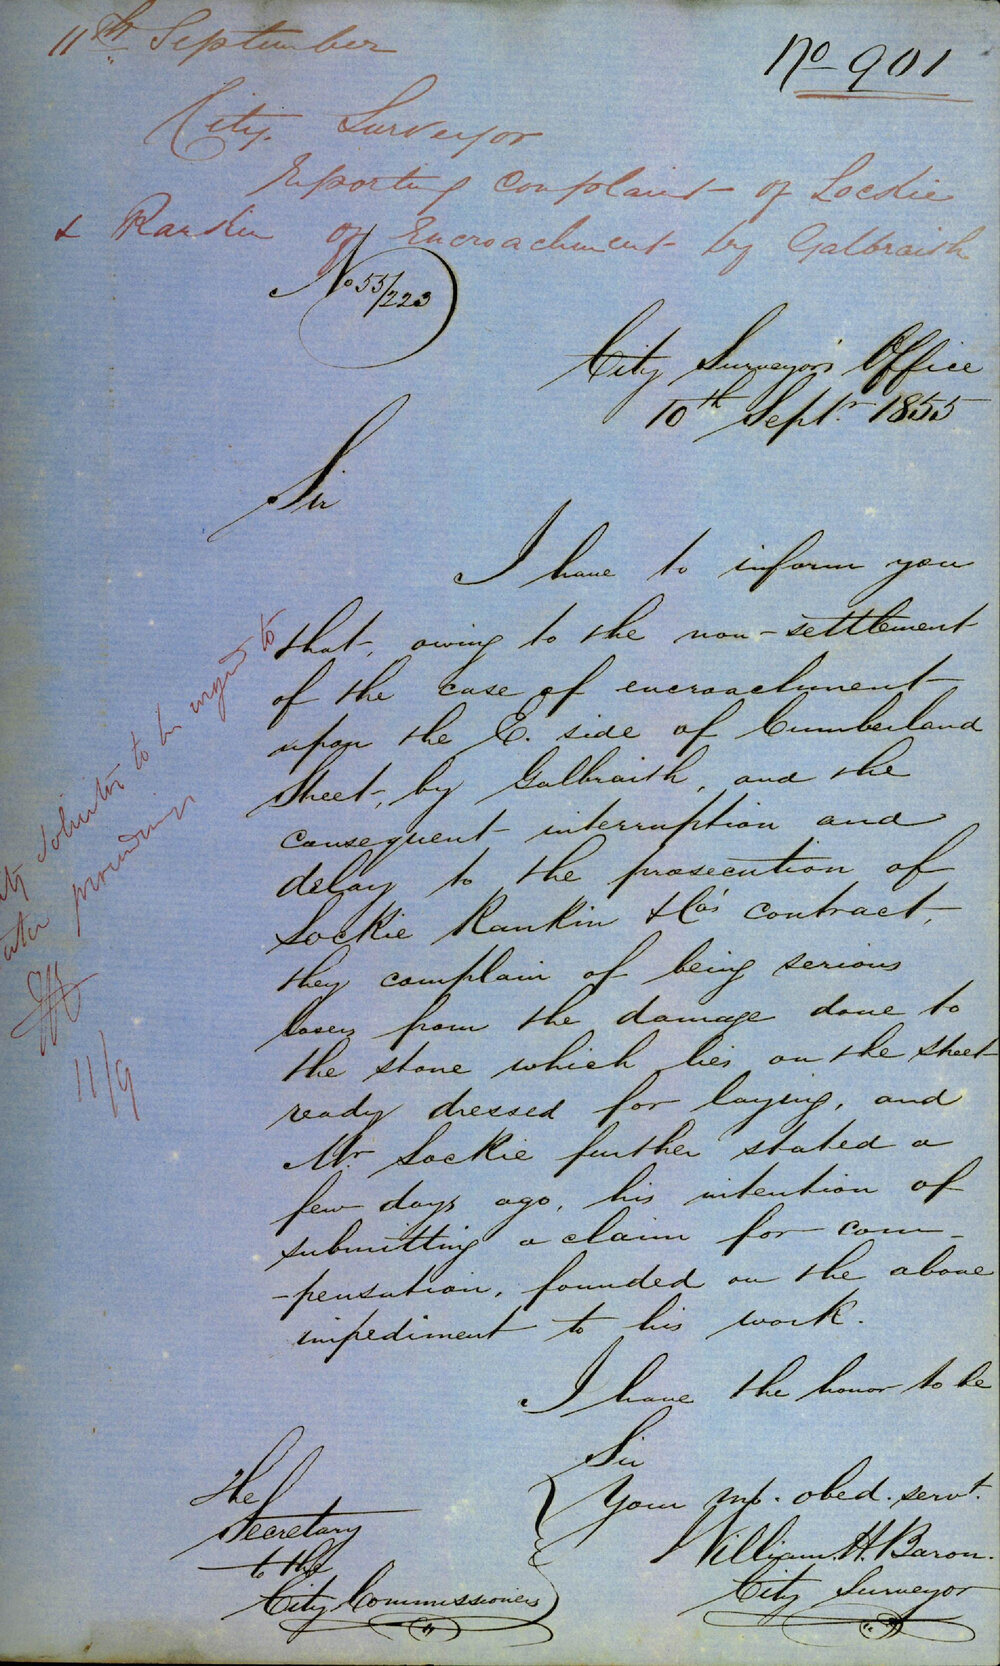 11th September
No 901
City Surveyor
Reporting Complaint of Lockie
& Rankin of Encroachment by Galbraith
No 55/223
City Surveyor's Office
10th Septr. 1855
Sir
I have to inform you
that, owing to the non-settlement
of the case of encroachment
upon the E. side of Cumberland
Street, by Galbraith, and the
consequent interruption and
delay to the prosecution of
Lockie Rankin & Co's contract,
they complain of being serious
losers from the damage done to
the stone which lies on the street
ready dressed for laying, and
Mr Lockie further stated a
few days ago, his intention of
submitting a claim for com-
-pensation, founded on the above
impediment to his work.
I have the honor to be
Sir
Your mo. obed. servt.
William. H. Baron.
City Surveyor
The
Secretary
to the
City Commissioners
Solicitor to be urged to
proceedings
11/9